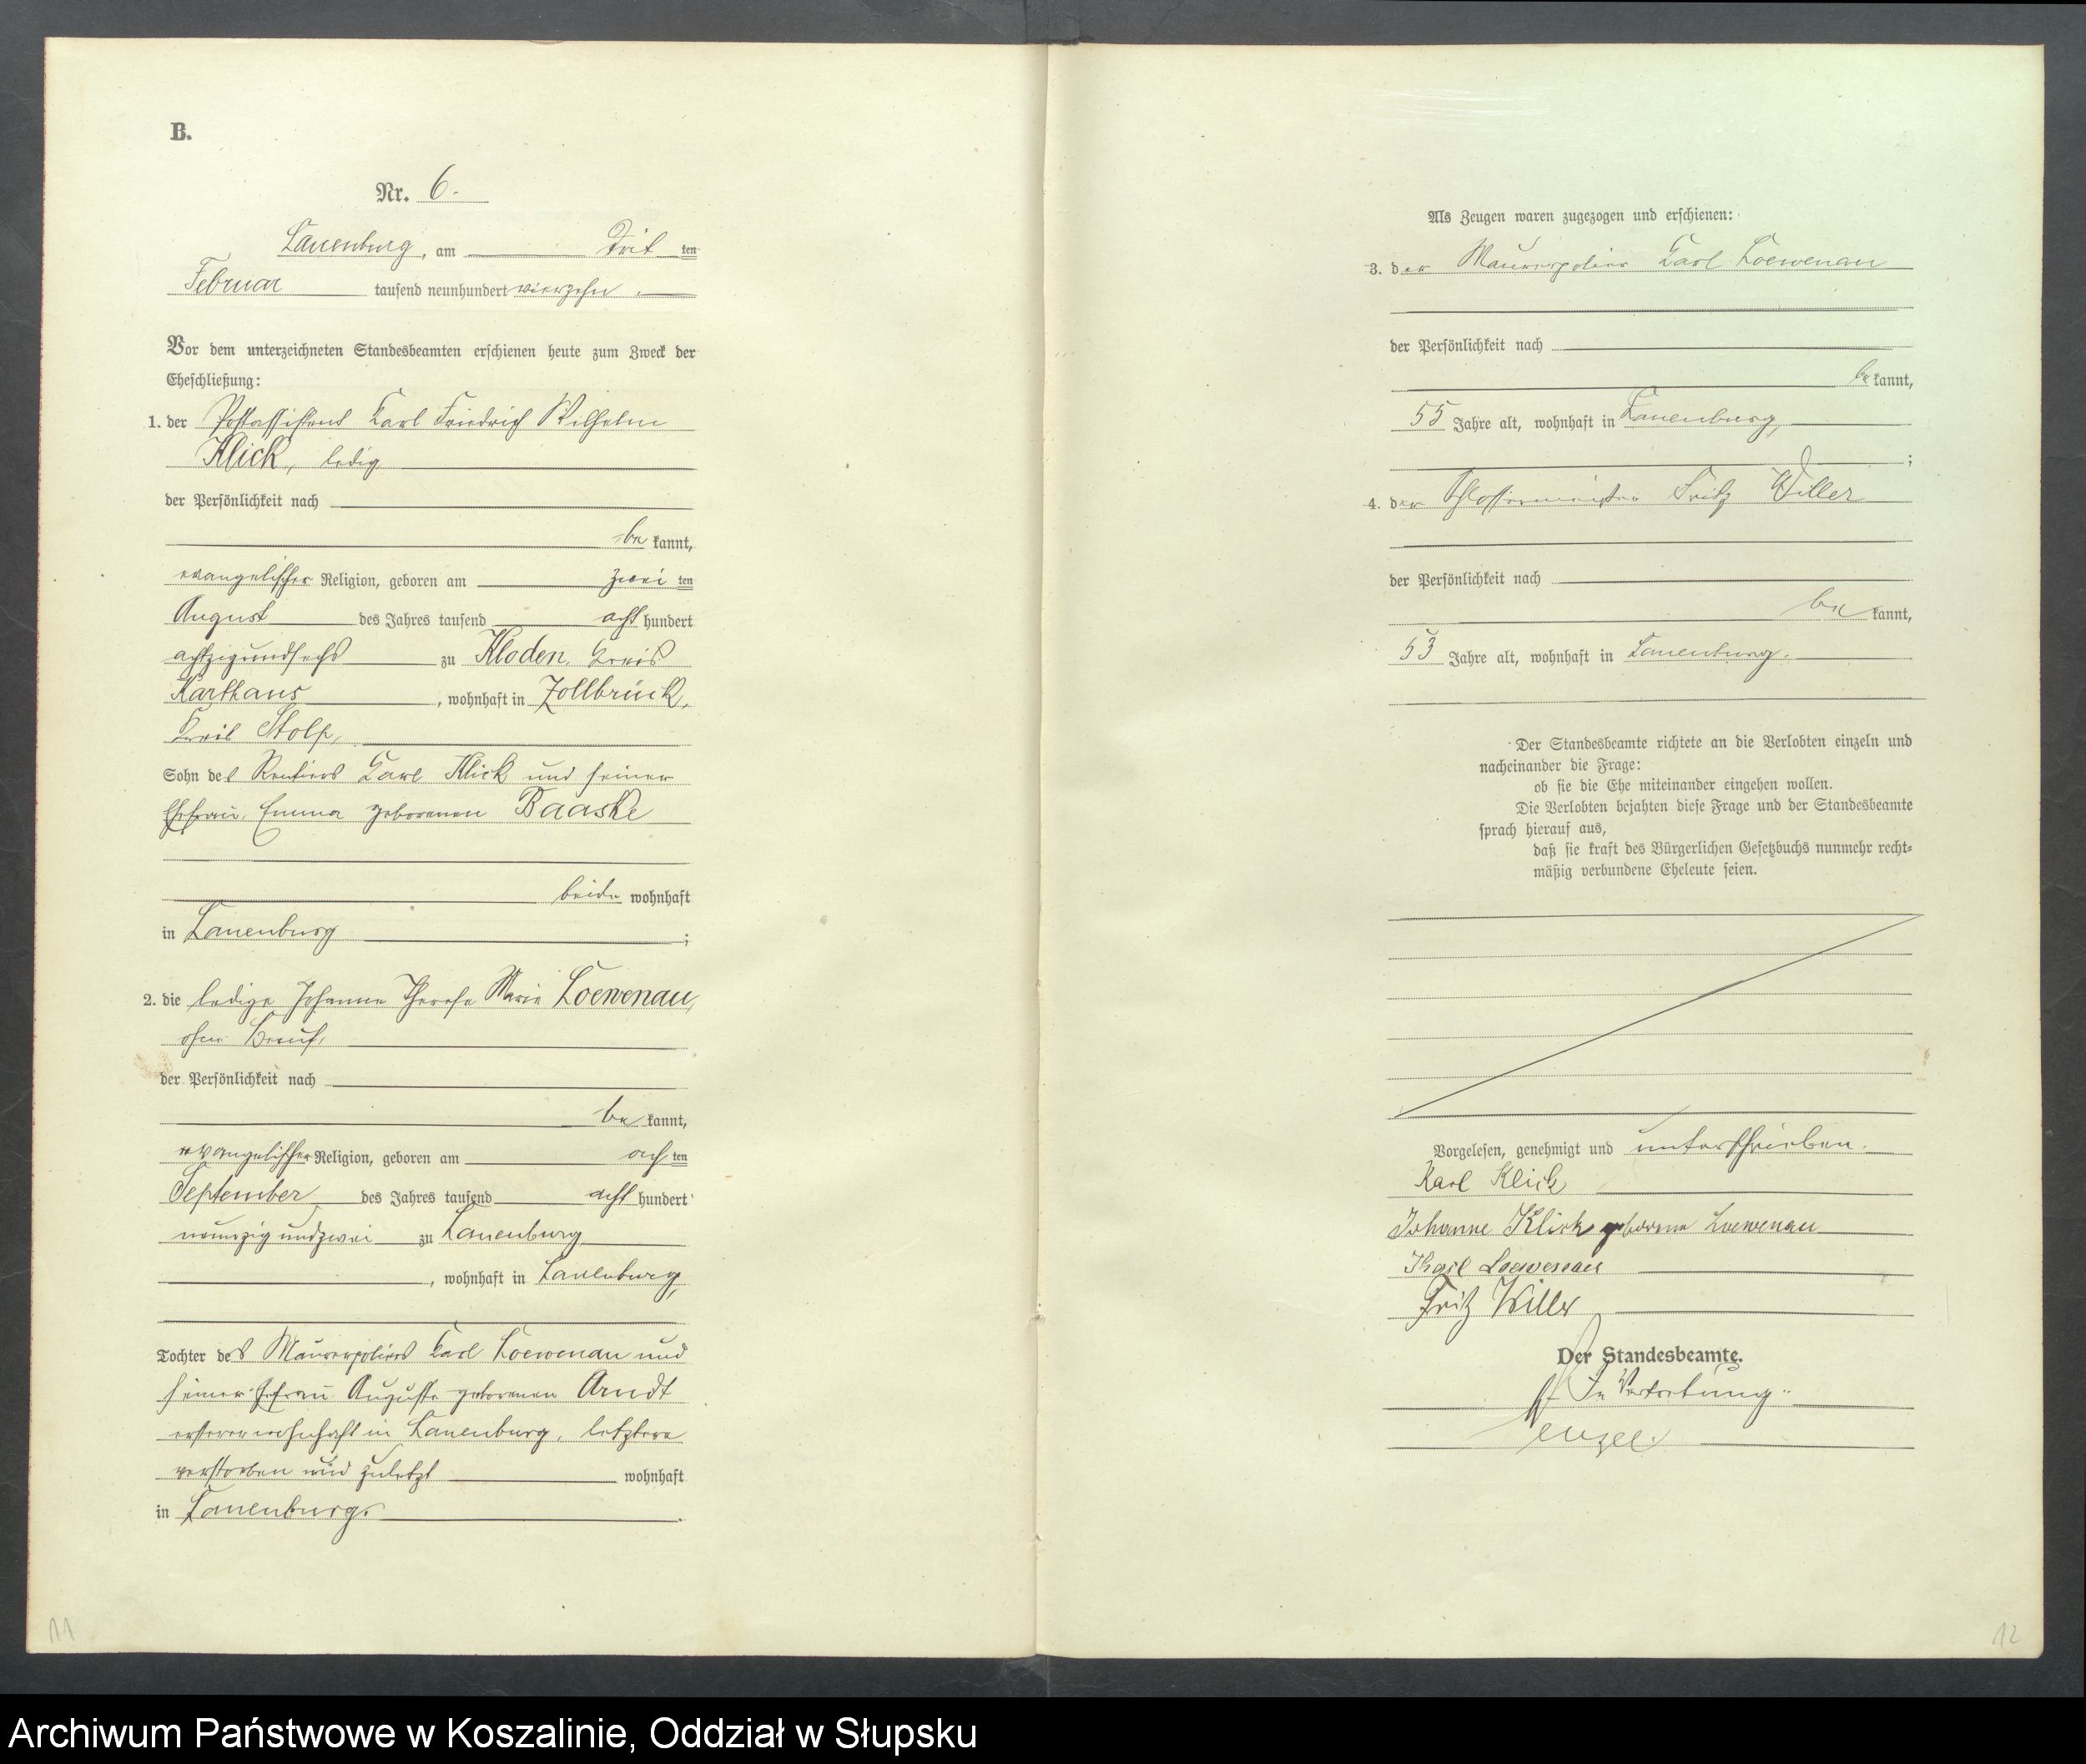 B.
Nr. 6.
Lauenburg, am drit ten
Februar tausend neunhundert vierzehn.
Vor dem unterzeichneten Standesbeamten erschienen heute zum Zweck der
Eheschließung:
1. der Postassistent Karl Friedrich Wilhelm
Klick, ledig
der Persönlichkeit nach
be kannt,
evangelischer Religion, geboren am zwei ten
August des Jahres tausend acht hundert
achtzigundsechs zu Kloden, Kreis
Karthaus, wohnhaft in Zollbrück,
Kreis Stolp,
Sohn des Rentiers Karl Klick und seiner
Ehefrau, Emma geborenen Baaske
beide wohnhaft
in Lauenburg;
2. die ledige Johanne Therese Marie Loewenau,
ohne Beruf,
der Persönlichkeit nach
be kannt,
evangelischer Religion, geboren am ach ten
September des Jahres tausend acht hundert
neunzigundzwei zu Lauenburg
, wohnhaft in Lauenburg,
Tochter des Maurerpoliers Karl Loewenau und
seiner Ehefrau Auguste geborenen Arndt
ersterer wohnhaft in Lauenburg, letztere
verstorben und zuletzt wohnhaft
in Lauenburg.
11
Als Zeugen waren zugezogen und erschienen:
3. der Maurerpolier Karl Loewenau
der Persönlichkeit nach
be kannt,
55 Jahre alt, wohnhaft in Lauenburg,
;
4. der Schlossermeister Fritz Willer
der Persönlichkeit nach
be kannt,
53 Jahre alt, wohnhaft in Lauenburg.
Der Standesbeamte richtete an die Verlobten einzeln und
nacheinander die Frage:
ob sie die Ehe miteinander eingehen wollen.
Die Verlobten bejahten diese Frage und der Standesbeamte
sprach hierauf aus,
daß sie kraft des Bürgerlichen Gesetzbuchs nunmehr recht-
mäßig verbundene Eheleute seien.
Vorgelesen, genehmigt und unterschrieben.
Karl Klick
Johanne Klick geborene Loewenau
Karl Loewenau
Fritz Willer
Der Standesbeamte.
In Vertretung.
12
Archiwum Państwowe w Koszalinie, Oddział w Słupsku